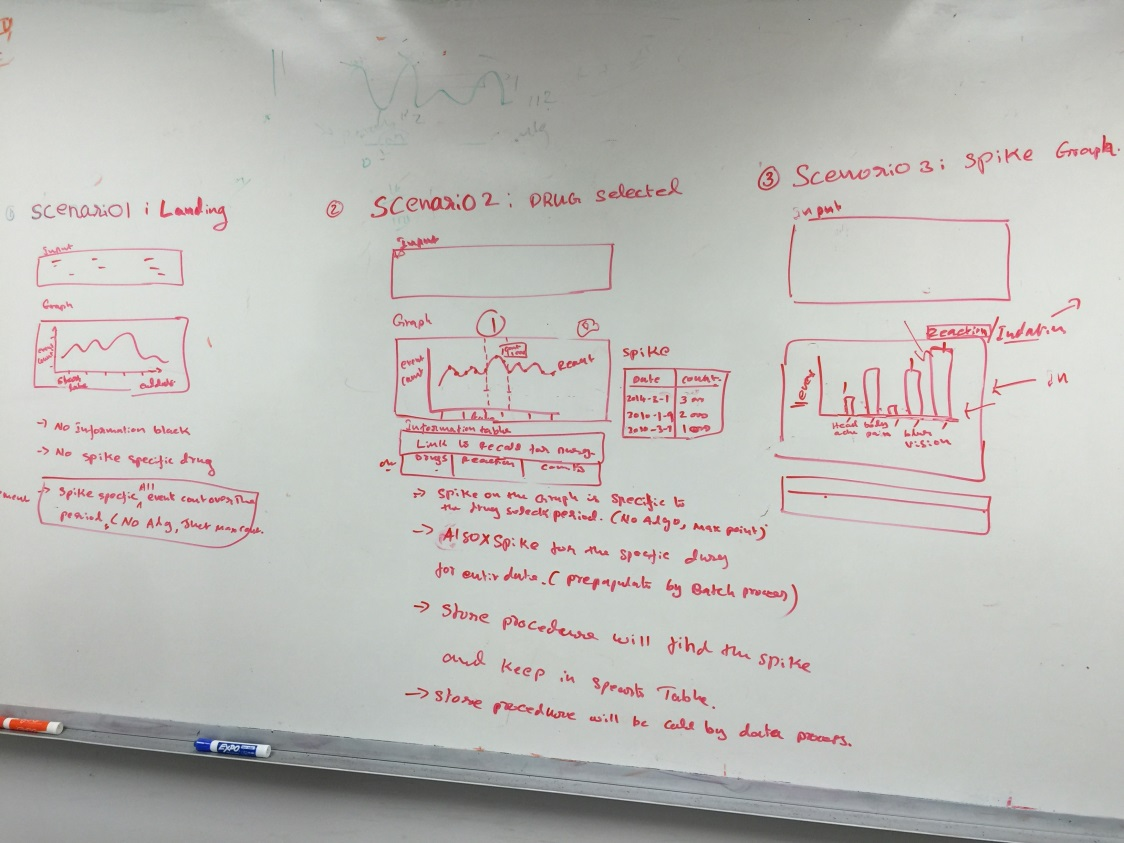 Scenario 1 : Landing
Input
Graph
event
count
end date
→ No Information block
→ No spike specific drug
→ Spike specific All event count over the
period. (No Alg, Just max count.
② SCenariO 2 : DRUG Selected
Input
Graph
1
event
count
Information table
Link to
drugs reaction counts
spike
Date count
2014-3-1 3 00
2010-1-9 2 000
2010-3-7 1000
→ Spike on the Graph is specific to
the drug select period. (No Algo, max point)
→ Also X Spike for the specific drug
for entir date. ( prepapulate by Batch process)
→ Store procedure will find the spike
and keep in Table.
→ store procedure will be call by data process.
③ Scenario 3 : Spike Graph.
Input
Reaction/
Head ache
body pain
blur vision
in
EXPO